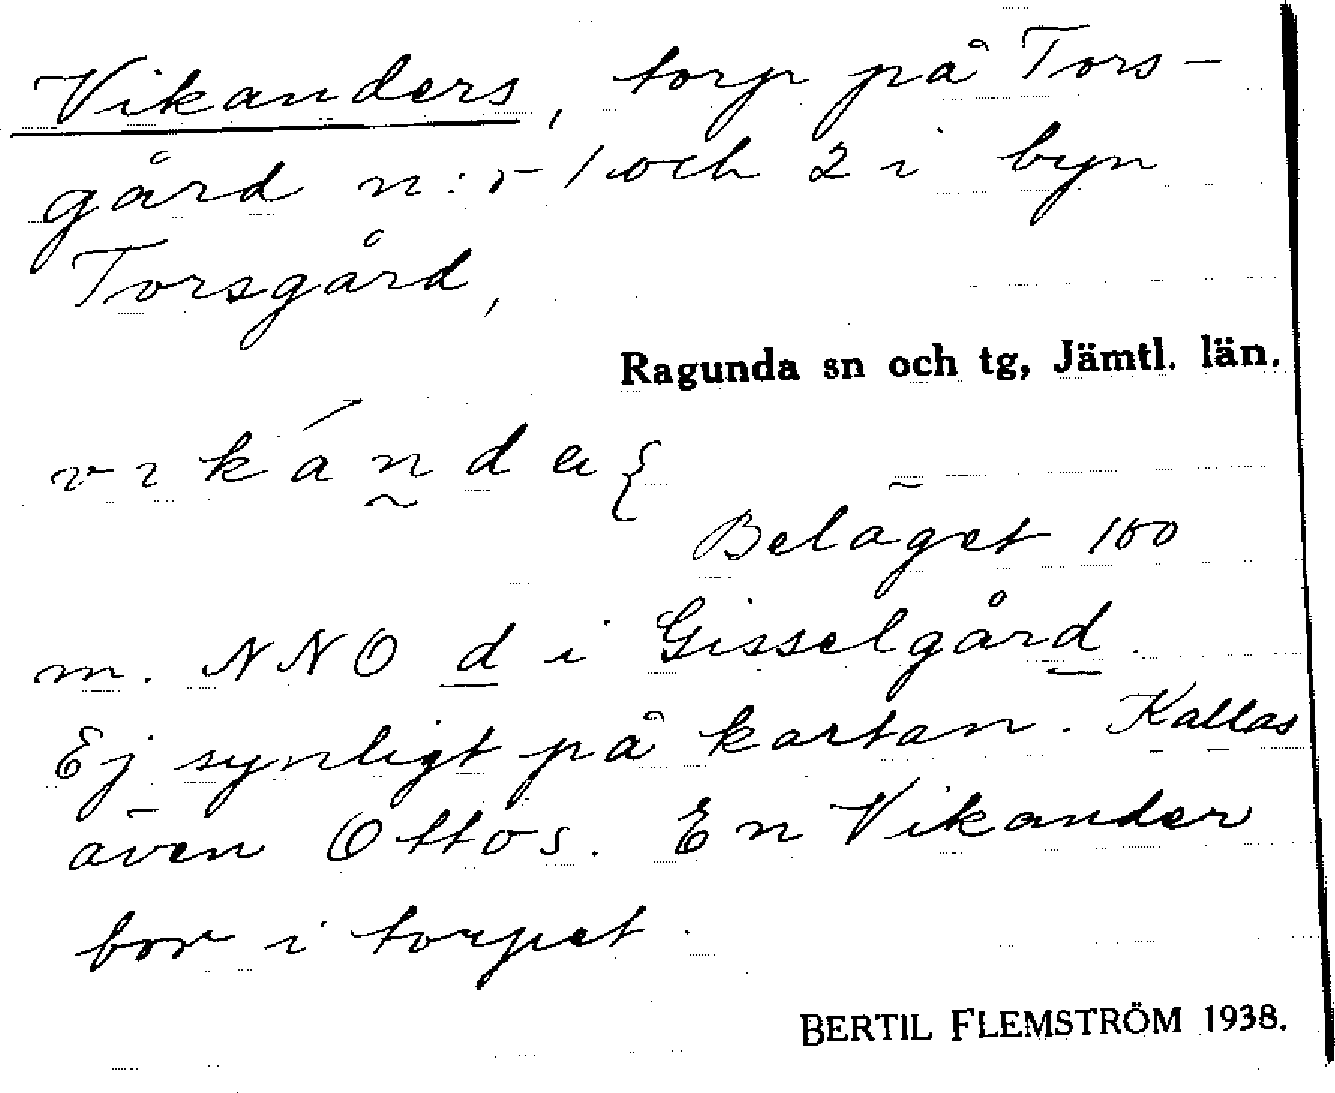 Vikanders, torp på Tors-
gård n:r 1 och 2 i byn
Torsgård,
Ragunda sn och tg, Jämtl. län.
Beläget 150
m. NNO d i Gisselgård.
Ej synligt på kartan. Kallas
även Ottos. En Vikander
bor i torpet.
BERTIL FLEMSTRÖM 1938.